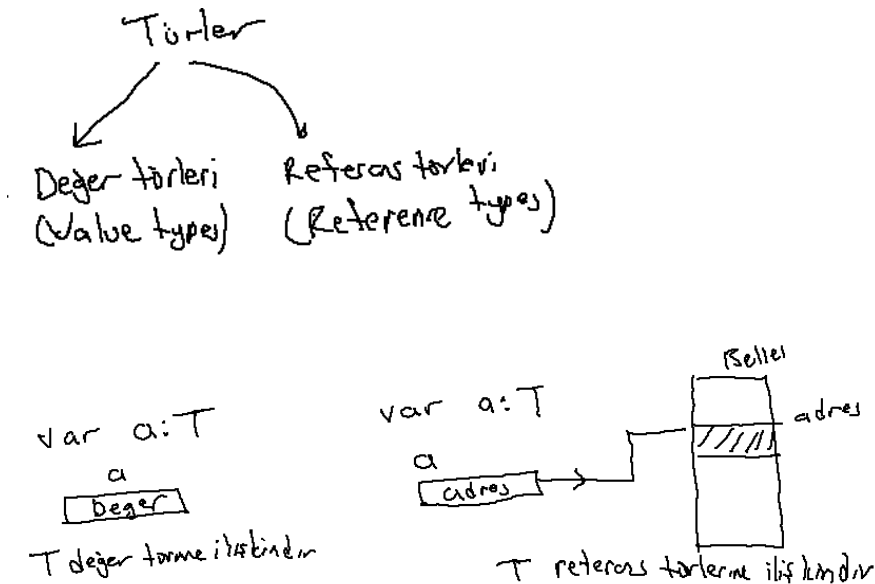 Türler
Değer türleri
(Value types)
Referans türleri
(Reference types)
var a:T
a
Değer
T değer türüne ilişkindir
var a:T
a
adres
Bellek
adres
T referans türlerine ilişkindir